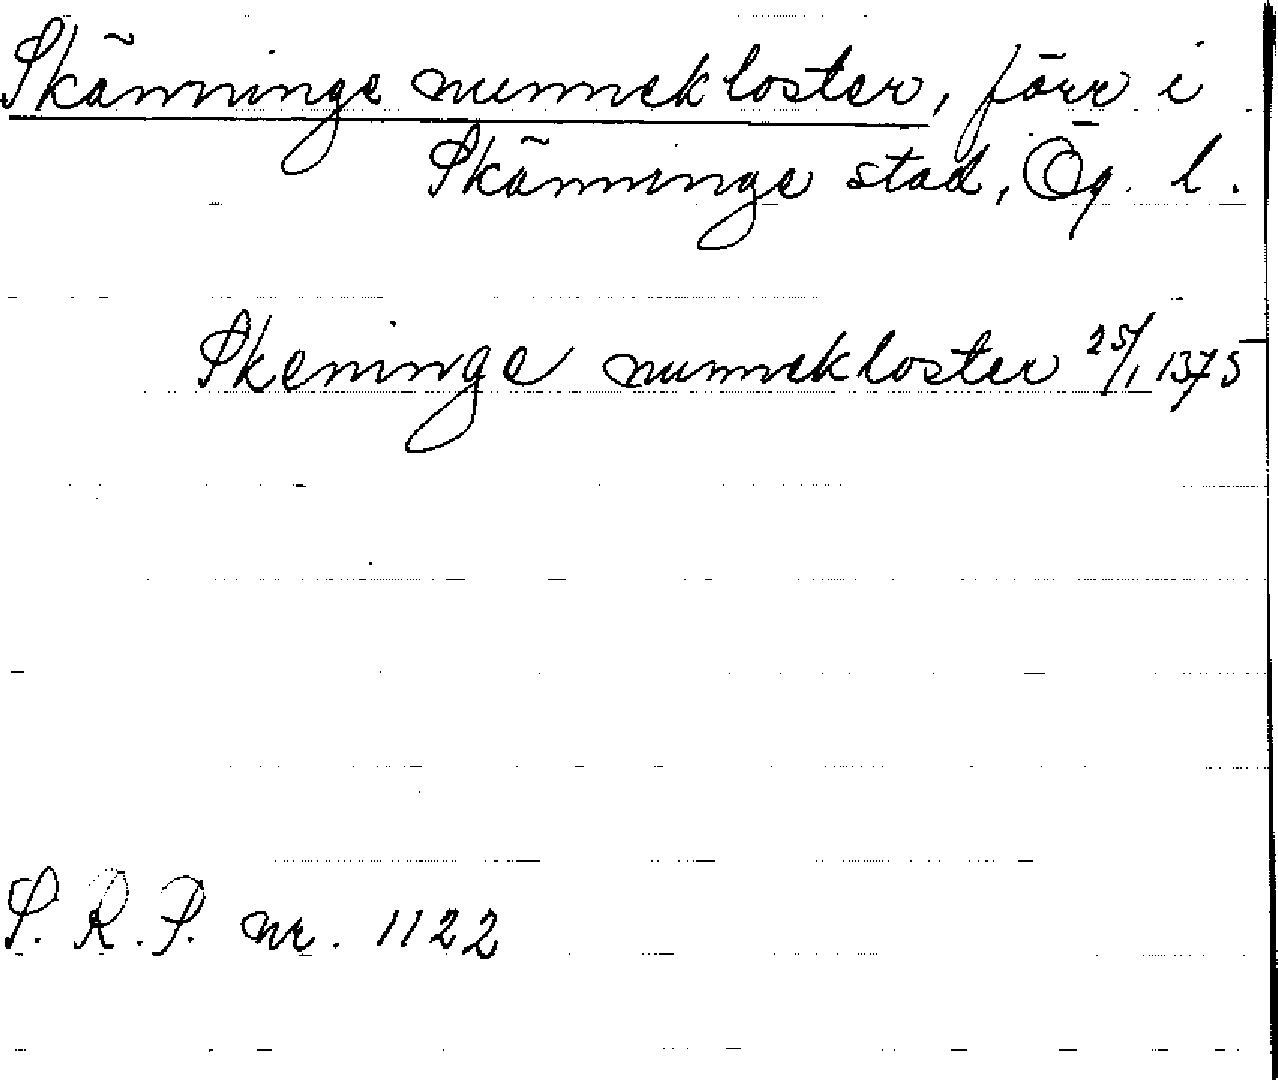 Skänninge nunnekloster, förr i
Skänninge stad, Ög. l.
Skeninge nunnekloster 25/1 1375
S. R. P. nr. 1122